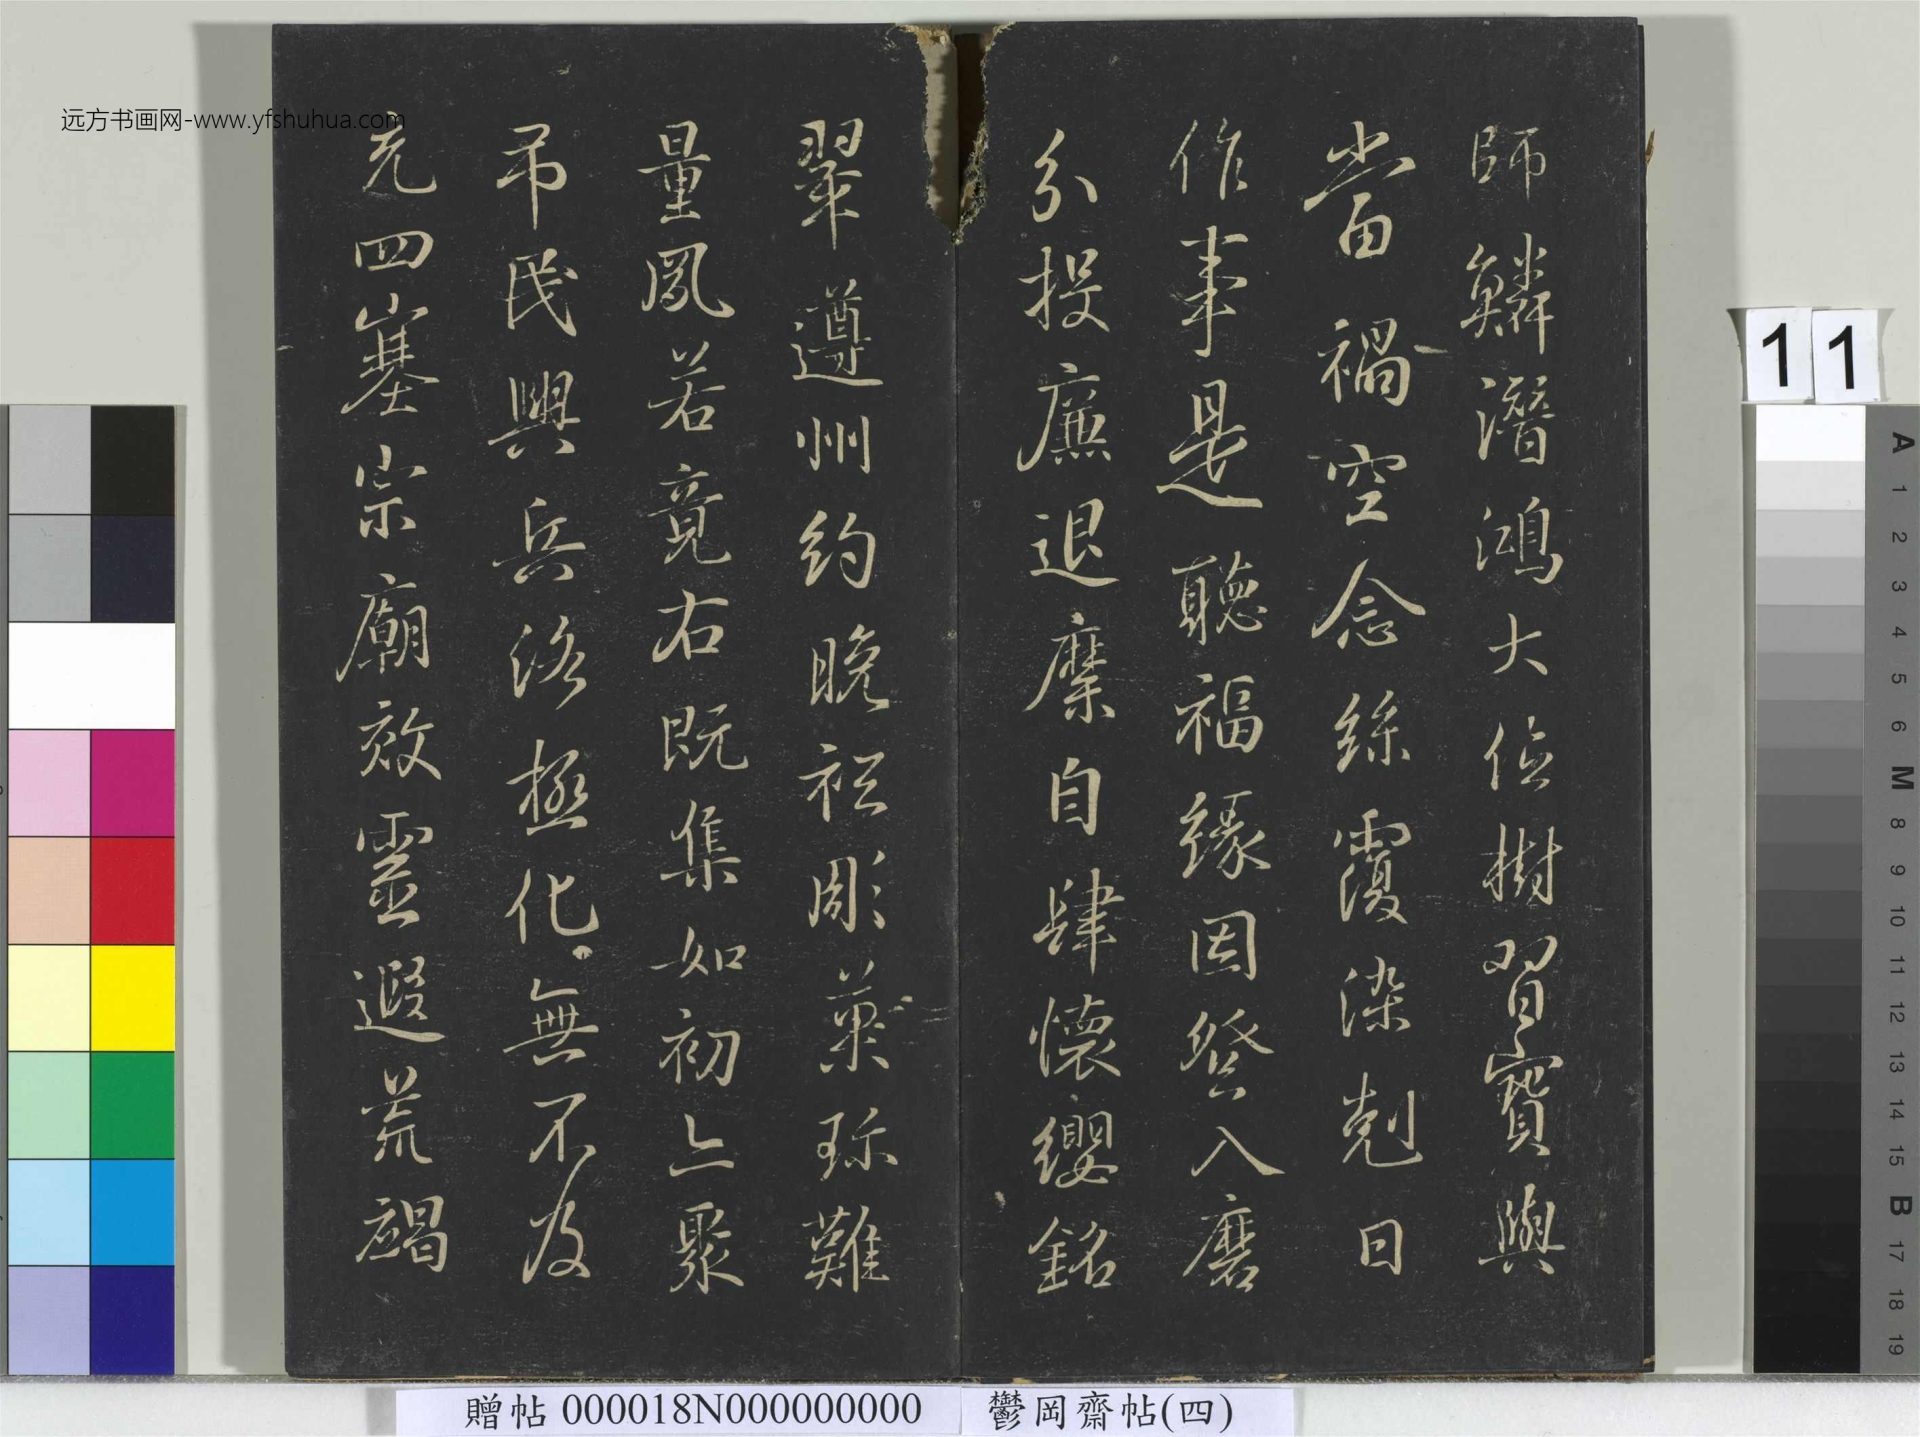 師鱗潛鴻大位樹習寶與
當禍空念絲覆染剋日
作事是聽福緣因登入磨
分投廉退縻自肆懷纓銘
翠遵州約晚彫菓珍難
量鳳若竟右既集如初上聚
弔民興兵洛極化無不及
充四塞宗廟效靈遐荒
远方书画网-www.yfshuhua.com
11
A 1 2 3 4 5 6 M 8 9 10 11 12 13 14 15 B 17 18 19
贈帖 000018N000000000 鬱岡齋帖(四)